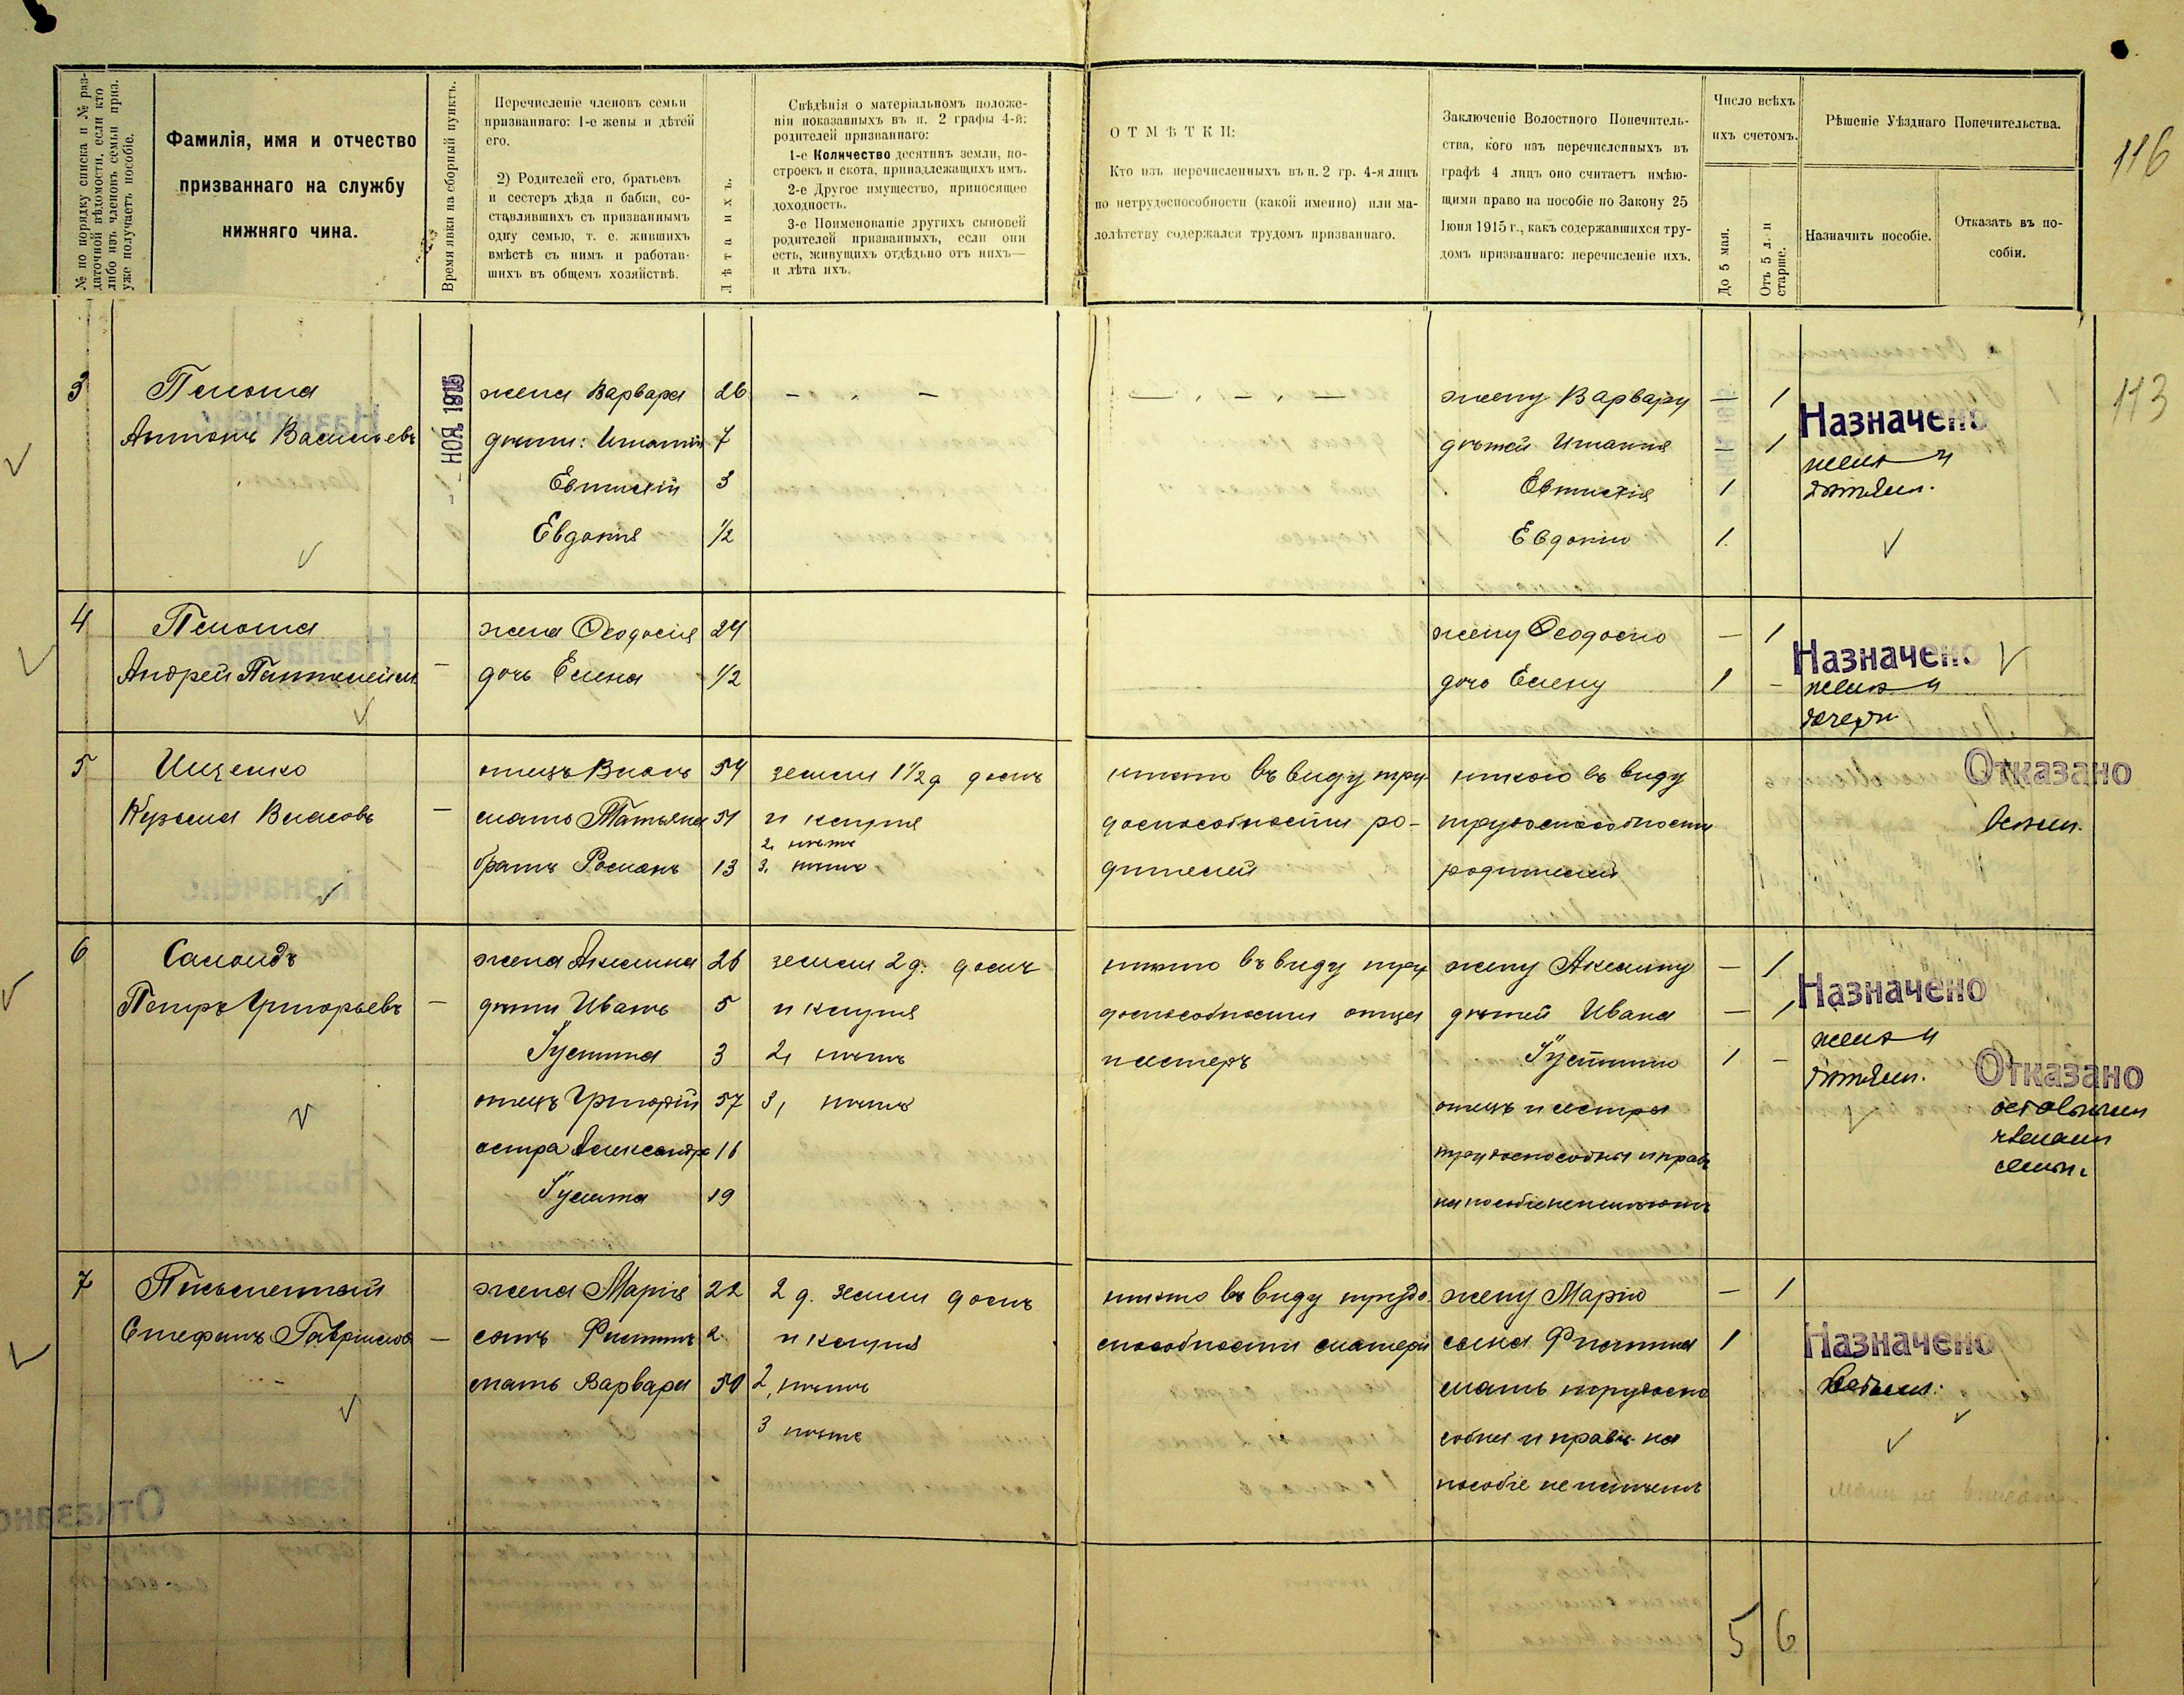 № по порядку списка и № раз-
даточной вѣдомости, если кто
либо изъ членовъ семьи приз.
уже получаетъ пособіе.
Фамилія, имя и отчество
призваннаго на службу
нижняго чина.
Время явки на сборный пунктъ.
Перечисленіе членовъ семьи
призваннаго: 1-е жены и дѣтей
его.
2) Родителей его, братьевъ
и сестеръ дѣда и бабки, со-
ставлявшихъ съ призваннымъ
одну семью, т. е. жившихъ
вмѣстѣ съ нимъ и работав-
шихъ въ общемъ хозяйствѣ.
Лѣта ихъ.
Свѣдѣнія о матеріальномъ положе-
ніи показанныхъ въ п. 2 графы 4-й:
родителей призваннаго:
1-е Количество десятинъ земли, по-
строекъ и скота, принадлежащихъ имъ.
2-е Другое имущество, приносящее
доходность.
3-е Поименованіе другихъ сыновей
родителей призванныхъ, если они
есть, живущихъ отдѣльно отъ нихъ—
и лѣта ихъ.
ОТМѢТКИ:
Кто изъ перечисленныхъ въ п. 2 гр. 4-я лицъ
по нетрудоспособности (какой именно) или ма-
лолѣтству содержался трудомъ призваннаго.
Заключеніе Волостного Попечитель-
ства, кого изъ перечисленныхъ въ
графѣ 4 лицъ оно считаетъ имѣю-
щими право на пособіе по Закону 25
Іюня 1915 г., какъ содержавшихся тру-
домъ призваннаго: перечисленіе ихъ.
Число всѣхъ
ихъ счетомъ.
До 5 мая.
Отъ 5 л. и
старше.
Рѣшеніе Уѣзднаго Попечительства.
Назначить пособіе.
Отказать въ по-
собіи.
116
113
3
Антонъ Васильевъ
НОЯ 1915
жена Варвара 26
дѣти: Игнатій 7
Евтихій 3
Евдокія 1/2
жену Варвару — 1
дѣтей Игнатія — 1
Евтихія 1
Евдокію 1
Назначено
женѣ и
дѣтямъ.
4
Андрей Пантелейм.
—
жена Ѳеодосія 24
дочь Елена 1/2
жену Ѳеодосію — 1
дочь Елену 1 —
Назначено
женѣ и
дочери
5
Ищенко
Кузьма Власовъ
—
отецъ Власъ 54
мать Татьяна 51
братъ Романъ 13
земли 1 1/2 д домъ
и клуня
2, нѣтъ
3, нѣтъ
никто въ виду тру
доспособности ро-
дителей
никого въ виду
трудоспособности
родителей
Отказано
всѣмъ.
6
Самойдъ
Петръ Григорьевъ
—
жена Акилина 26
дѣти Иванъ 5
Іустина 3
отецъ Григорій 57
сестра Александра 16
19
земли 2 д. домъ
и клуня
2, нѣтъ
3, нѣтъ
никто въ виду тру
доспособности отца
и сестеръ
жену Акилину — 1
дѣтей Ивана — 1
Іустину 1 —
отецъ и сестры
трудоспособны и правъ
на пособіе не имѣютъ
Назначено
женѣ и
дѣтямъ.
Отказано
остальнымъ
членамъ
семьи.
7
Письменный
Стефанъ Гавріиловъ
—
жена Марія 22
сынъ Филиппъ 2
мать Варвара 50
2 д. земли домъ
и клуня
2, нѣтъ
3 нѣтъ
никто въ виду трудо
способности матери
жену Марію — 1
сына Филиппа 1
мать трудоспо
собна и правъ на
пособіе не имѣетъ
Назначено
всѣмъ.
5 6